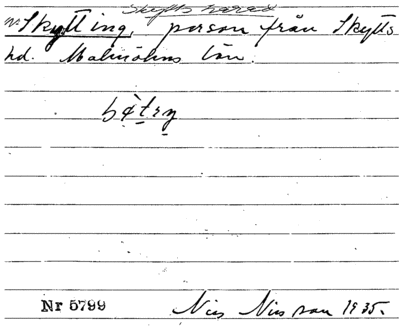 Skytts härad
n. Skytting, person från Skytts
hd. Malmöhus län.
Nr 5799
Nils Nilsson 1935.